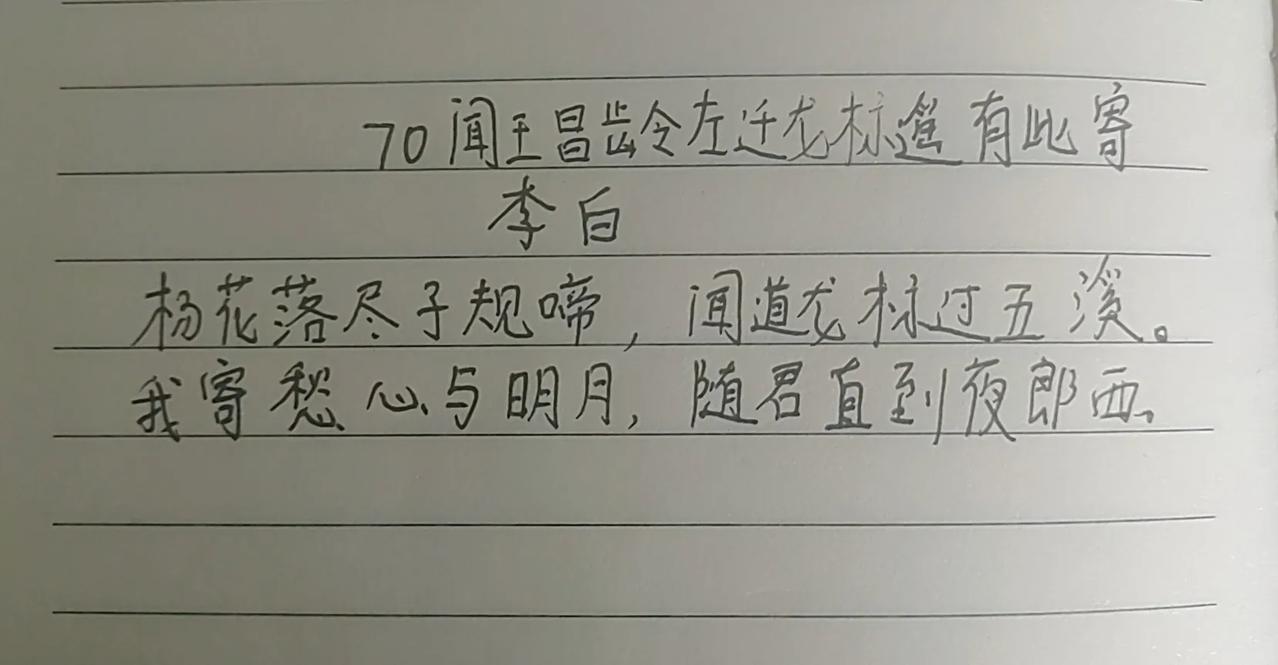 70 闻王昌龄令左迁龙标遥有此寄
李白
杨花落尽子规啼，闻道龙标过五溪。
我寄愁心与明月，随君直到夜郎西。